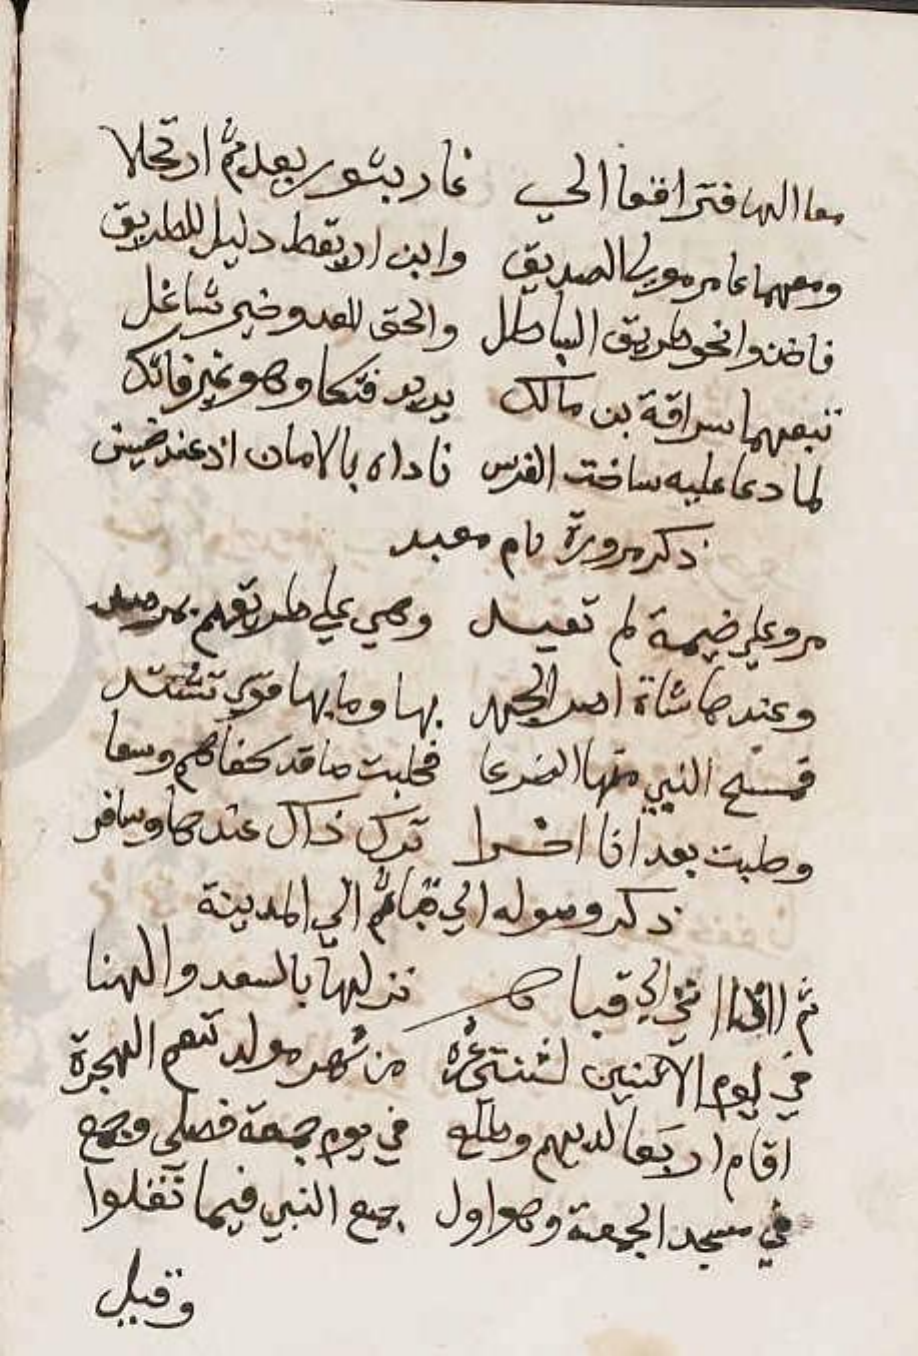 معا اليها فترافقا الي غار بثور بعد ثم ارتحلا
ومعهما عامر مولي الصديق وابن اريقط دليل للطريق
فاخذوا نحو طريق الساحل والحق للعدو خير شاغل
تبعهما سراقة بن مالك يريد فتكا وهو غير فاتك
لما دعا عليه ساخت الفرس ناداه بالامان اذ عنه حبس
ذكر مروره بام معبد
مروا علي خيمة ام معبد وهي علي طريقهم بمرصد
وعندها شاة اضر الجهد بها وما بها قوي تشتد
فمسح النبي منها الضرعا فحلبت ما قد كفاهم وسعا
وحلبت بعد انا اخرا ترك ذاك عندها وسافر
ذكر وصوله الي قبا ثم الي المدينة
ثم اتي الي قبا نزلها بالسعد والهنا
في يوم الاثنين لثنتي عشره من شهر مولد فنعم الهجرة
اقام اربعا لديهم وطلع في يوم جمعة فصلي وجمع
في مسجد الجمعة وهو اول جمع النبي فيما نقلوا
وقيل